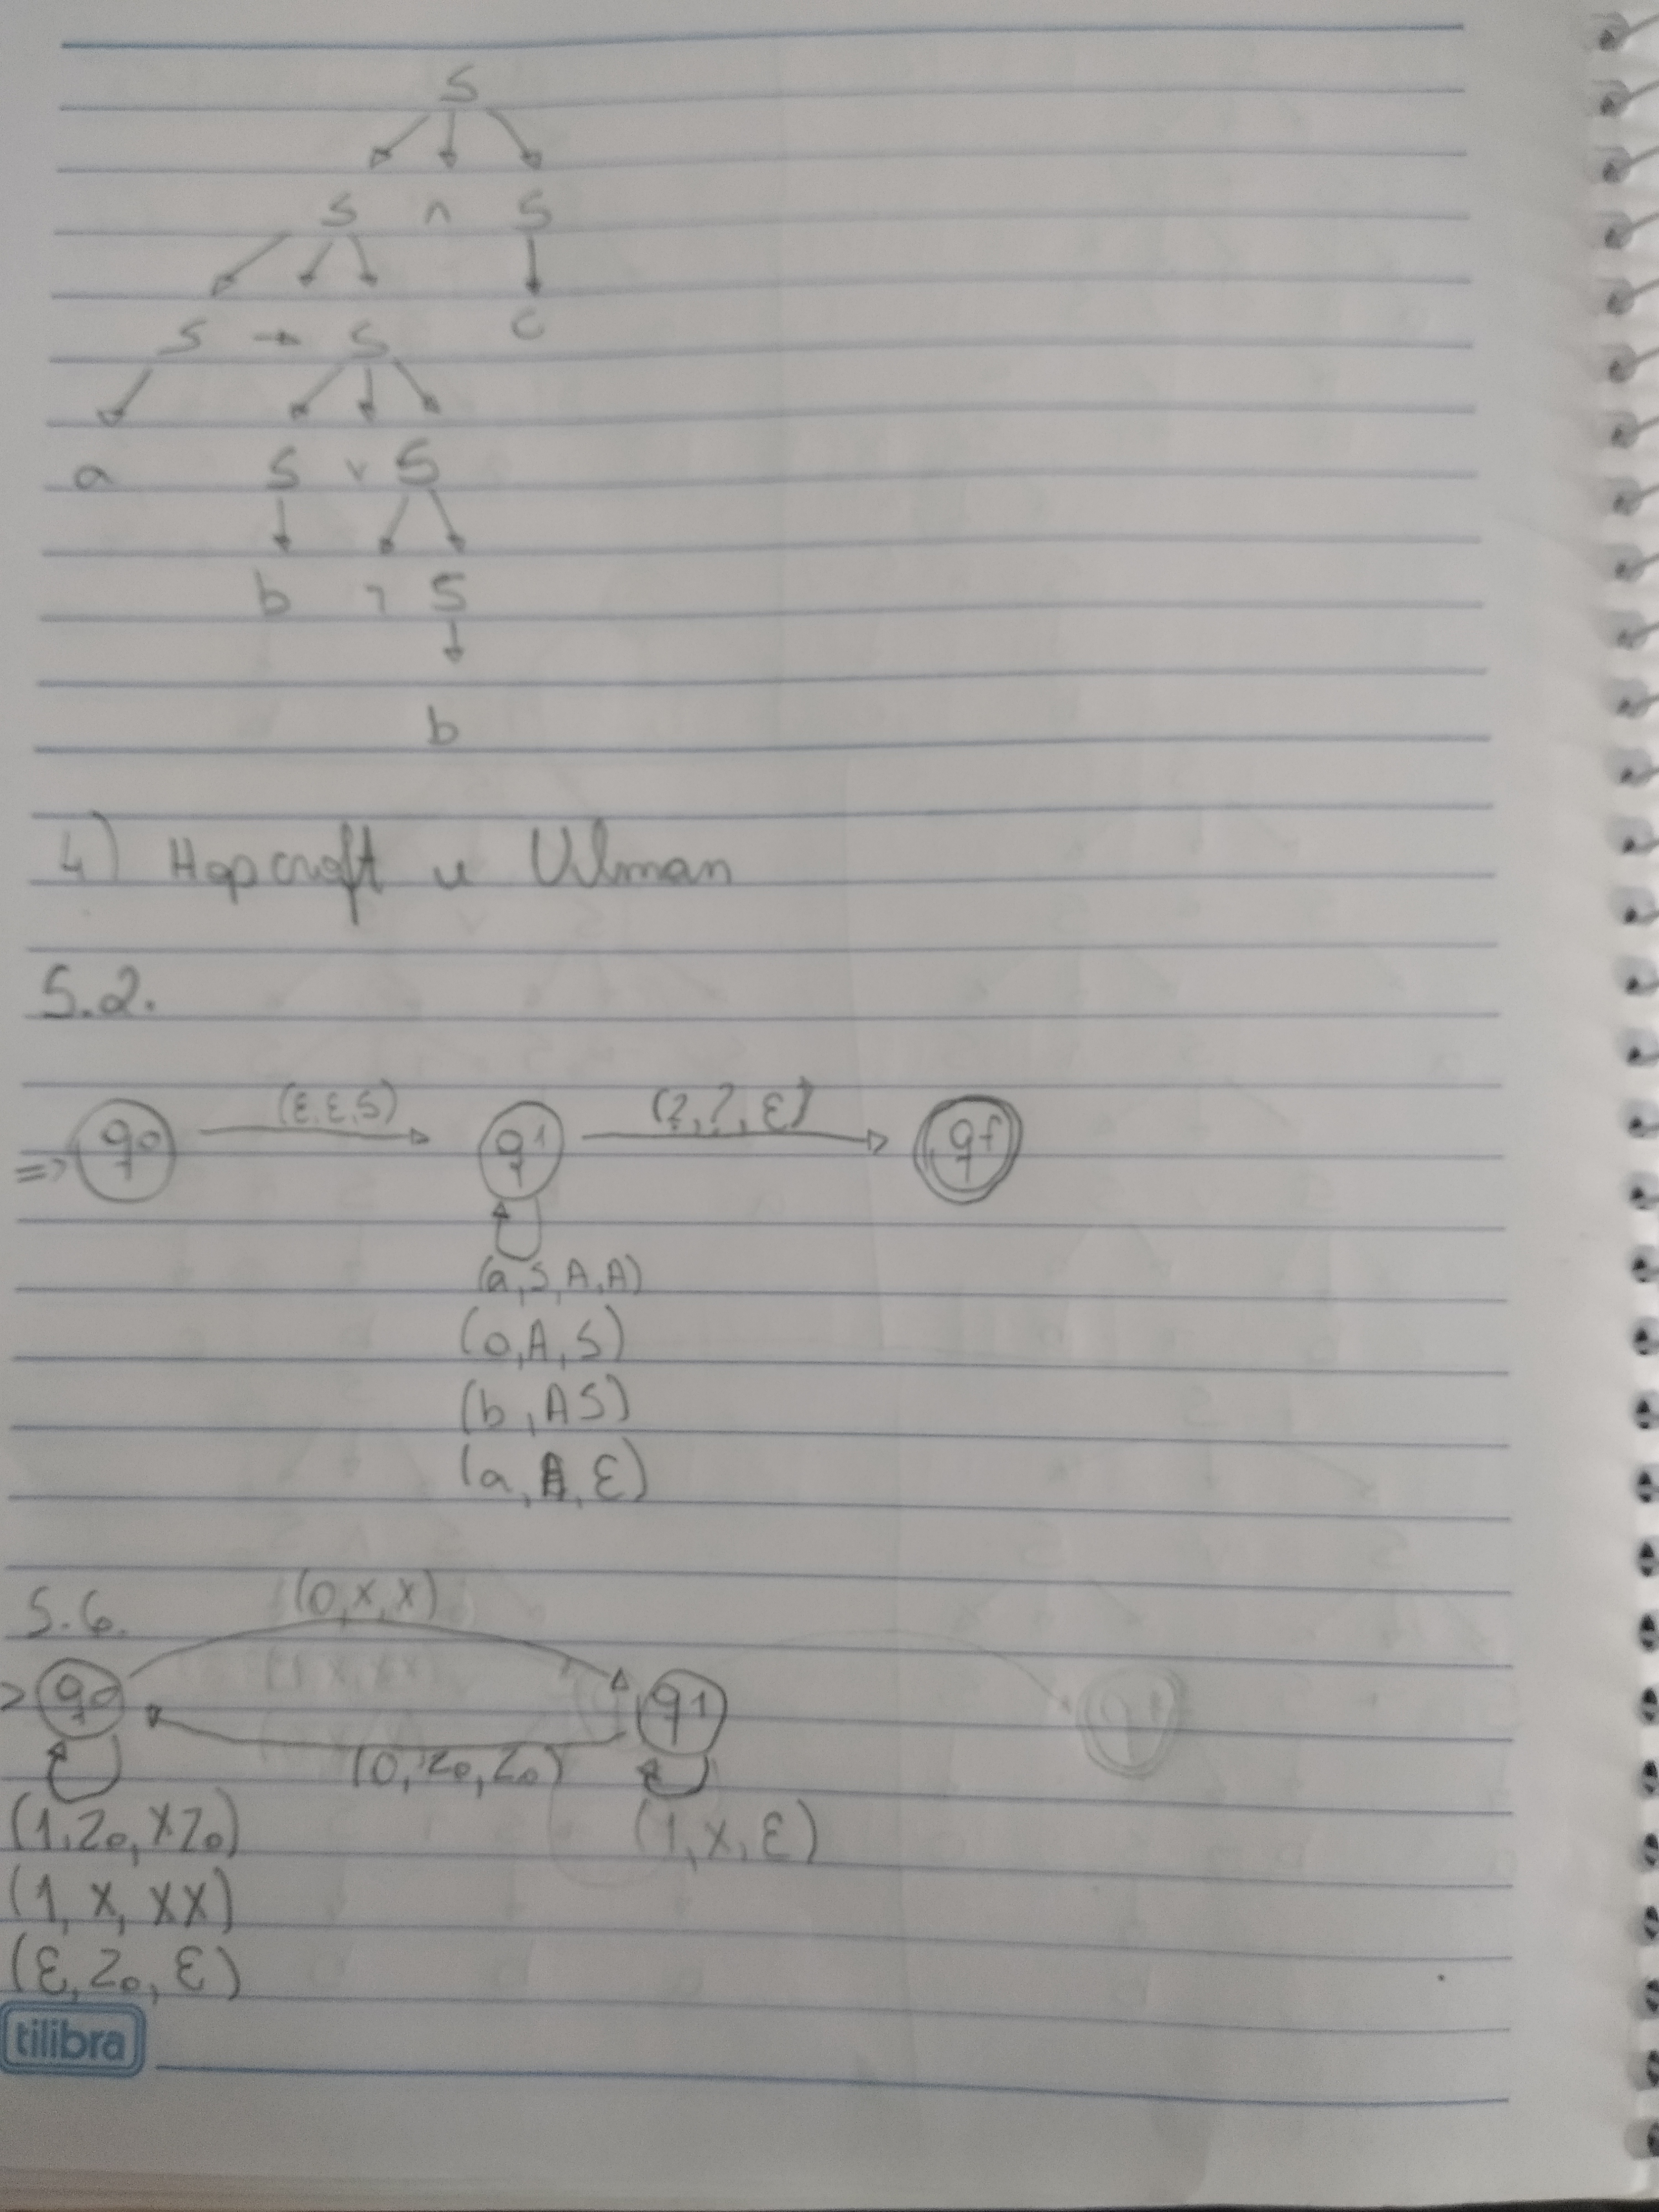 S
S ∧ S
S → S c
a S ∨ S
b ¬ S
b
4) Hopcroft e Ullman
5.2.
(ε, ε, S) (?, ?, ε)
=> q0 q1 qf
(a, S, A, A)
(0, A, S)
(b, A S)
(a, A, ε)
5.6. (0, x, x)
> q0 q1 qf
(0, Z0, Z0)
(1, Z0, XZ0) (1, X, ε)
(1, X, XX)
(ε, Z0, ε)
tilibra